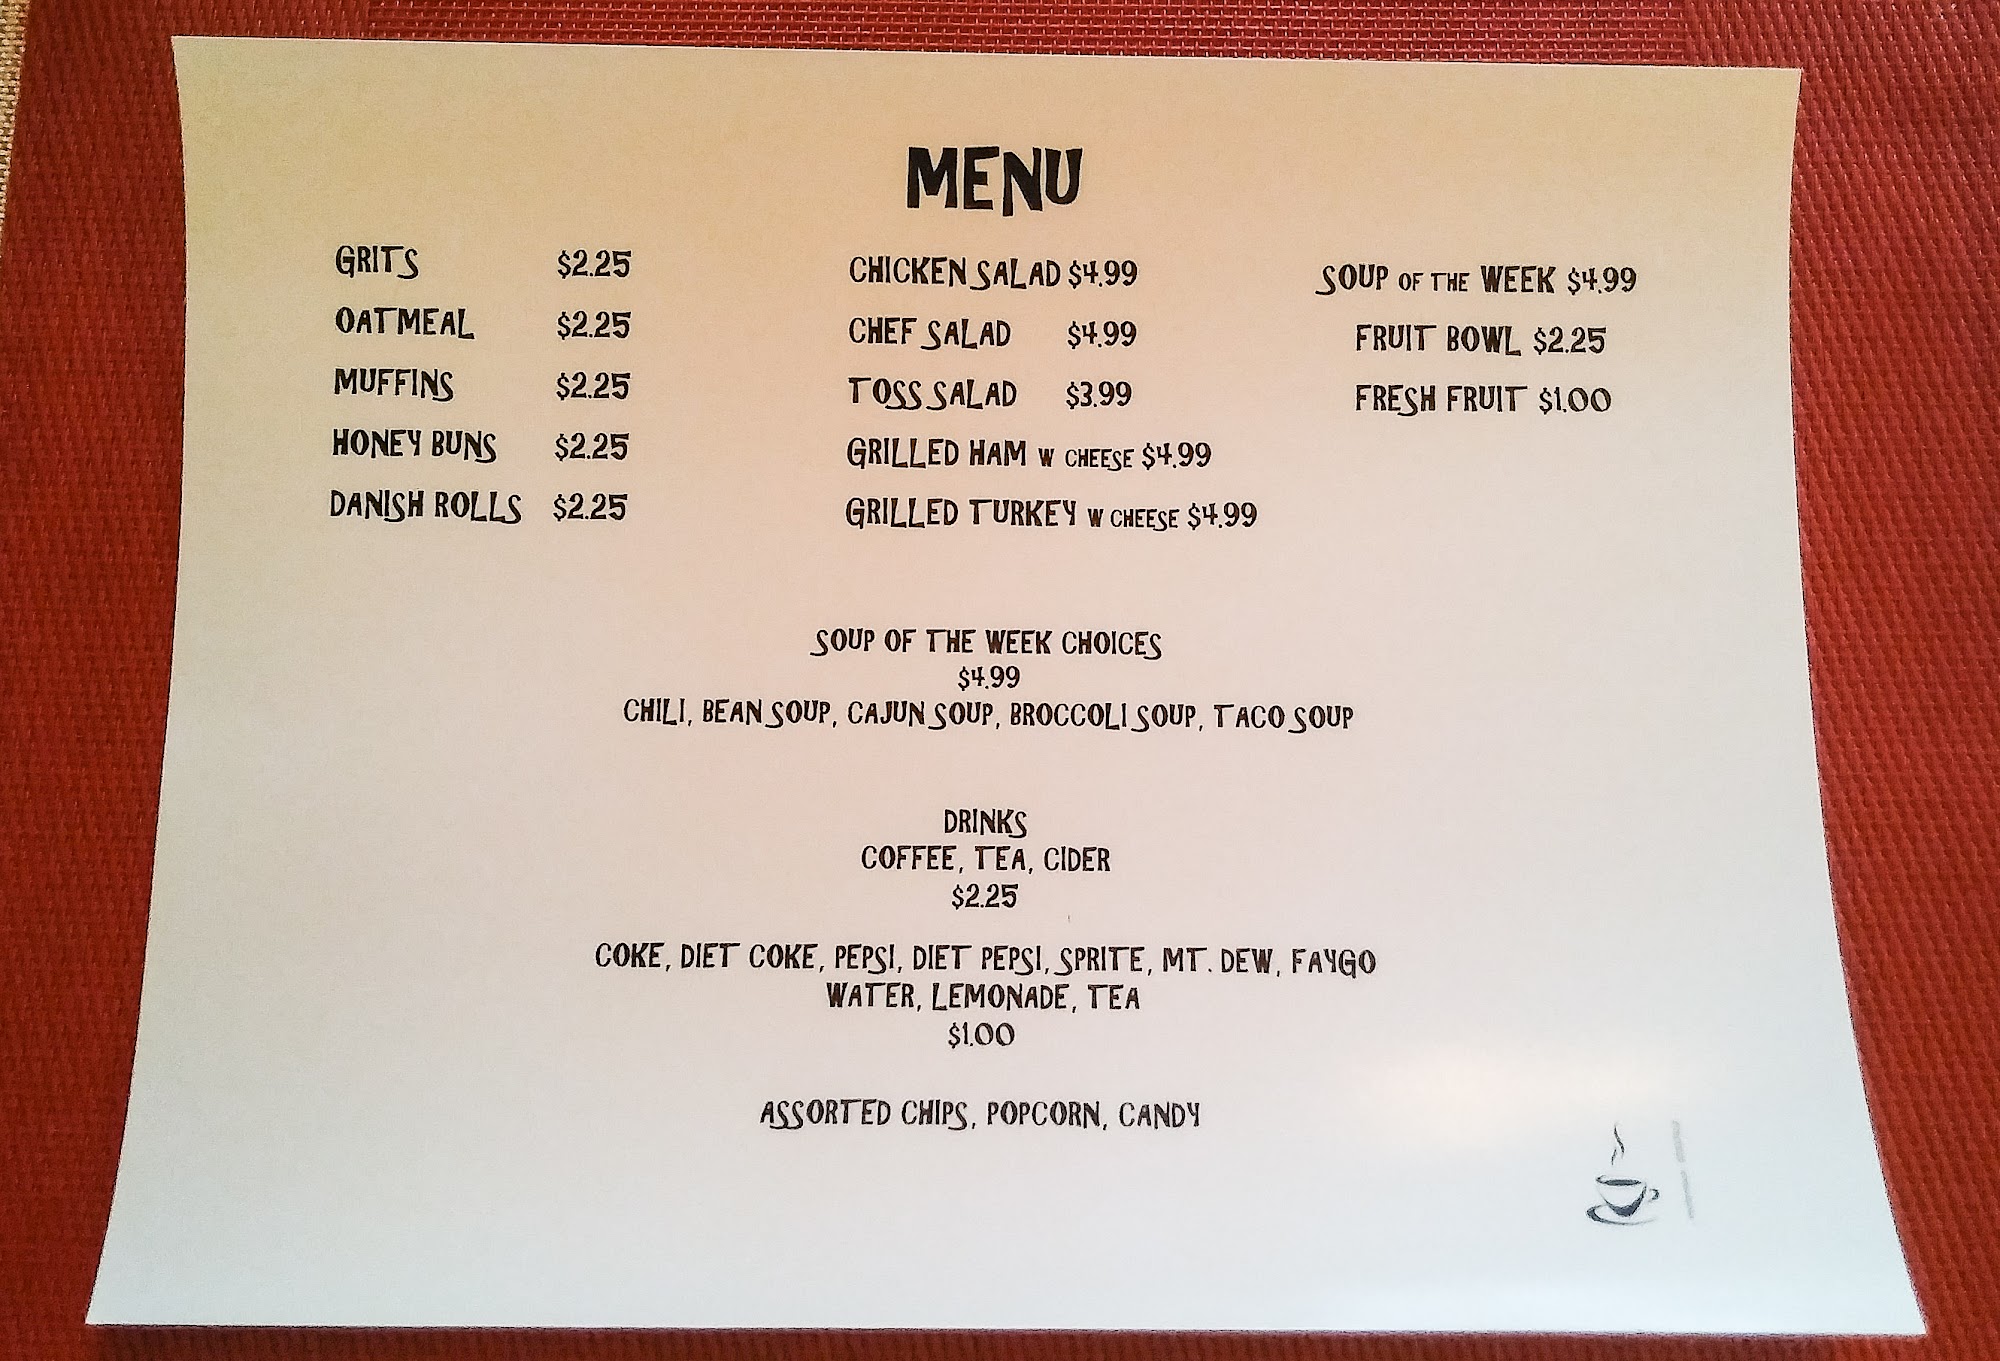 MENU
GRITS $2.25
OATMEAL $2.25
MUFFINS $2.25
HONEY BUNS $2.25
DANISH ROLLS $2.25
CHICKEN SALAD $4.99
CHEF SALAD $4.99
TOSS SALAD $3.99
GRILLED HAM W CHEESE $4.99
GRILLED TURKEY W CHEESE $4.99
SOUP OF THE WEEK $4.99
FRUIT BOWL $2.25
FRESH FRUIT $1.00
SOUP OF THE WEEK CHOICES
$4.99
CHILI, BEAN SOUP, CAJUN SOUP, BROCCOLI SOUP, TACO SOUP
DRINKS
COFFEE, TEA, CIDER
$2.25
COKE, DIET COKE, PEPSI, DIET PEPSI, SPRITE, MT. DEW, FAYGO
WATER, LEMONADE, TEA
$1.00
ASSORTED CHIPS, POPCORN, CANDY